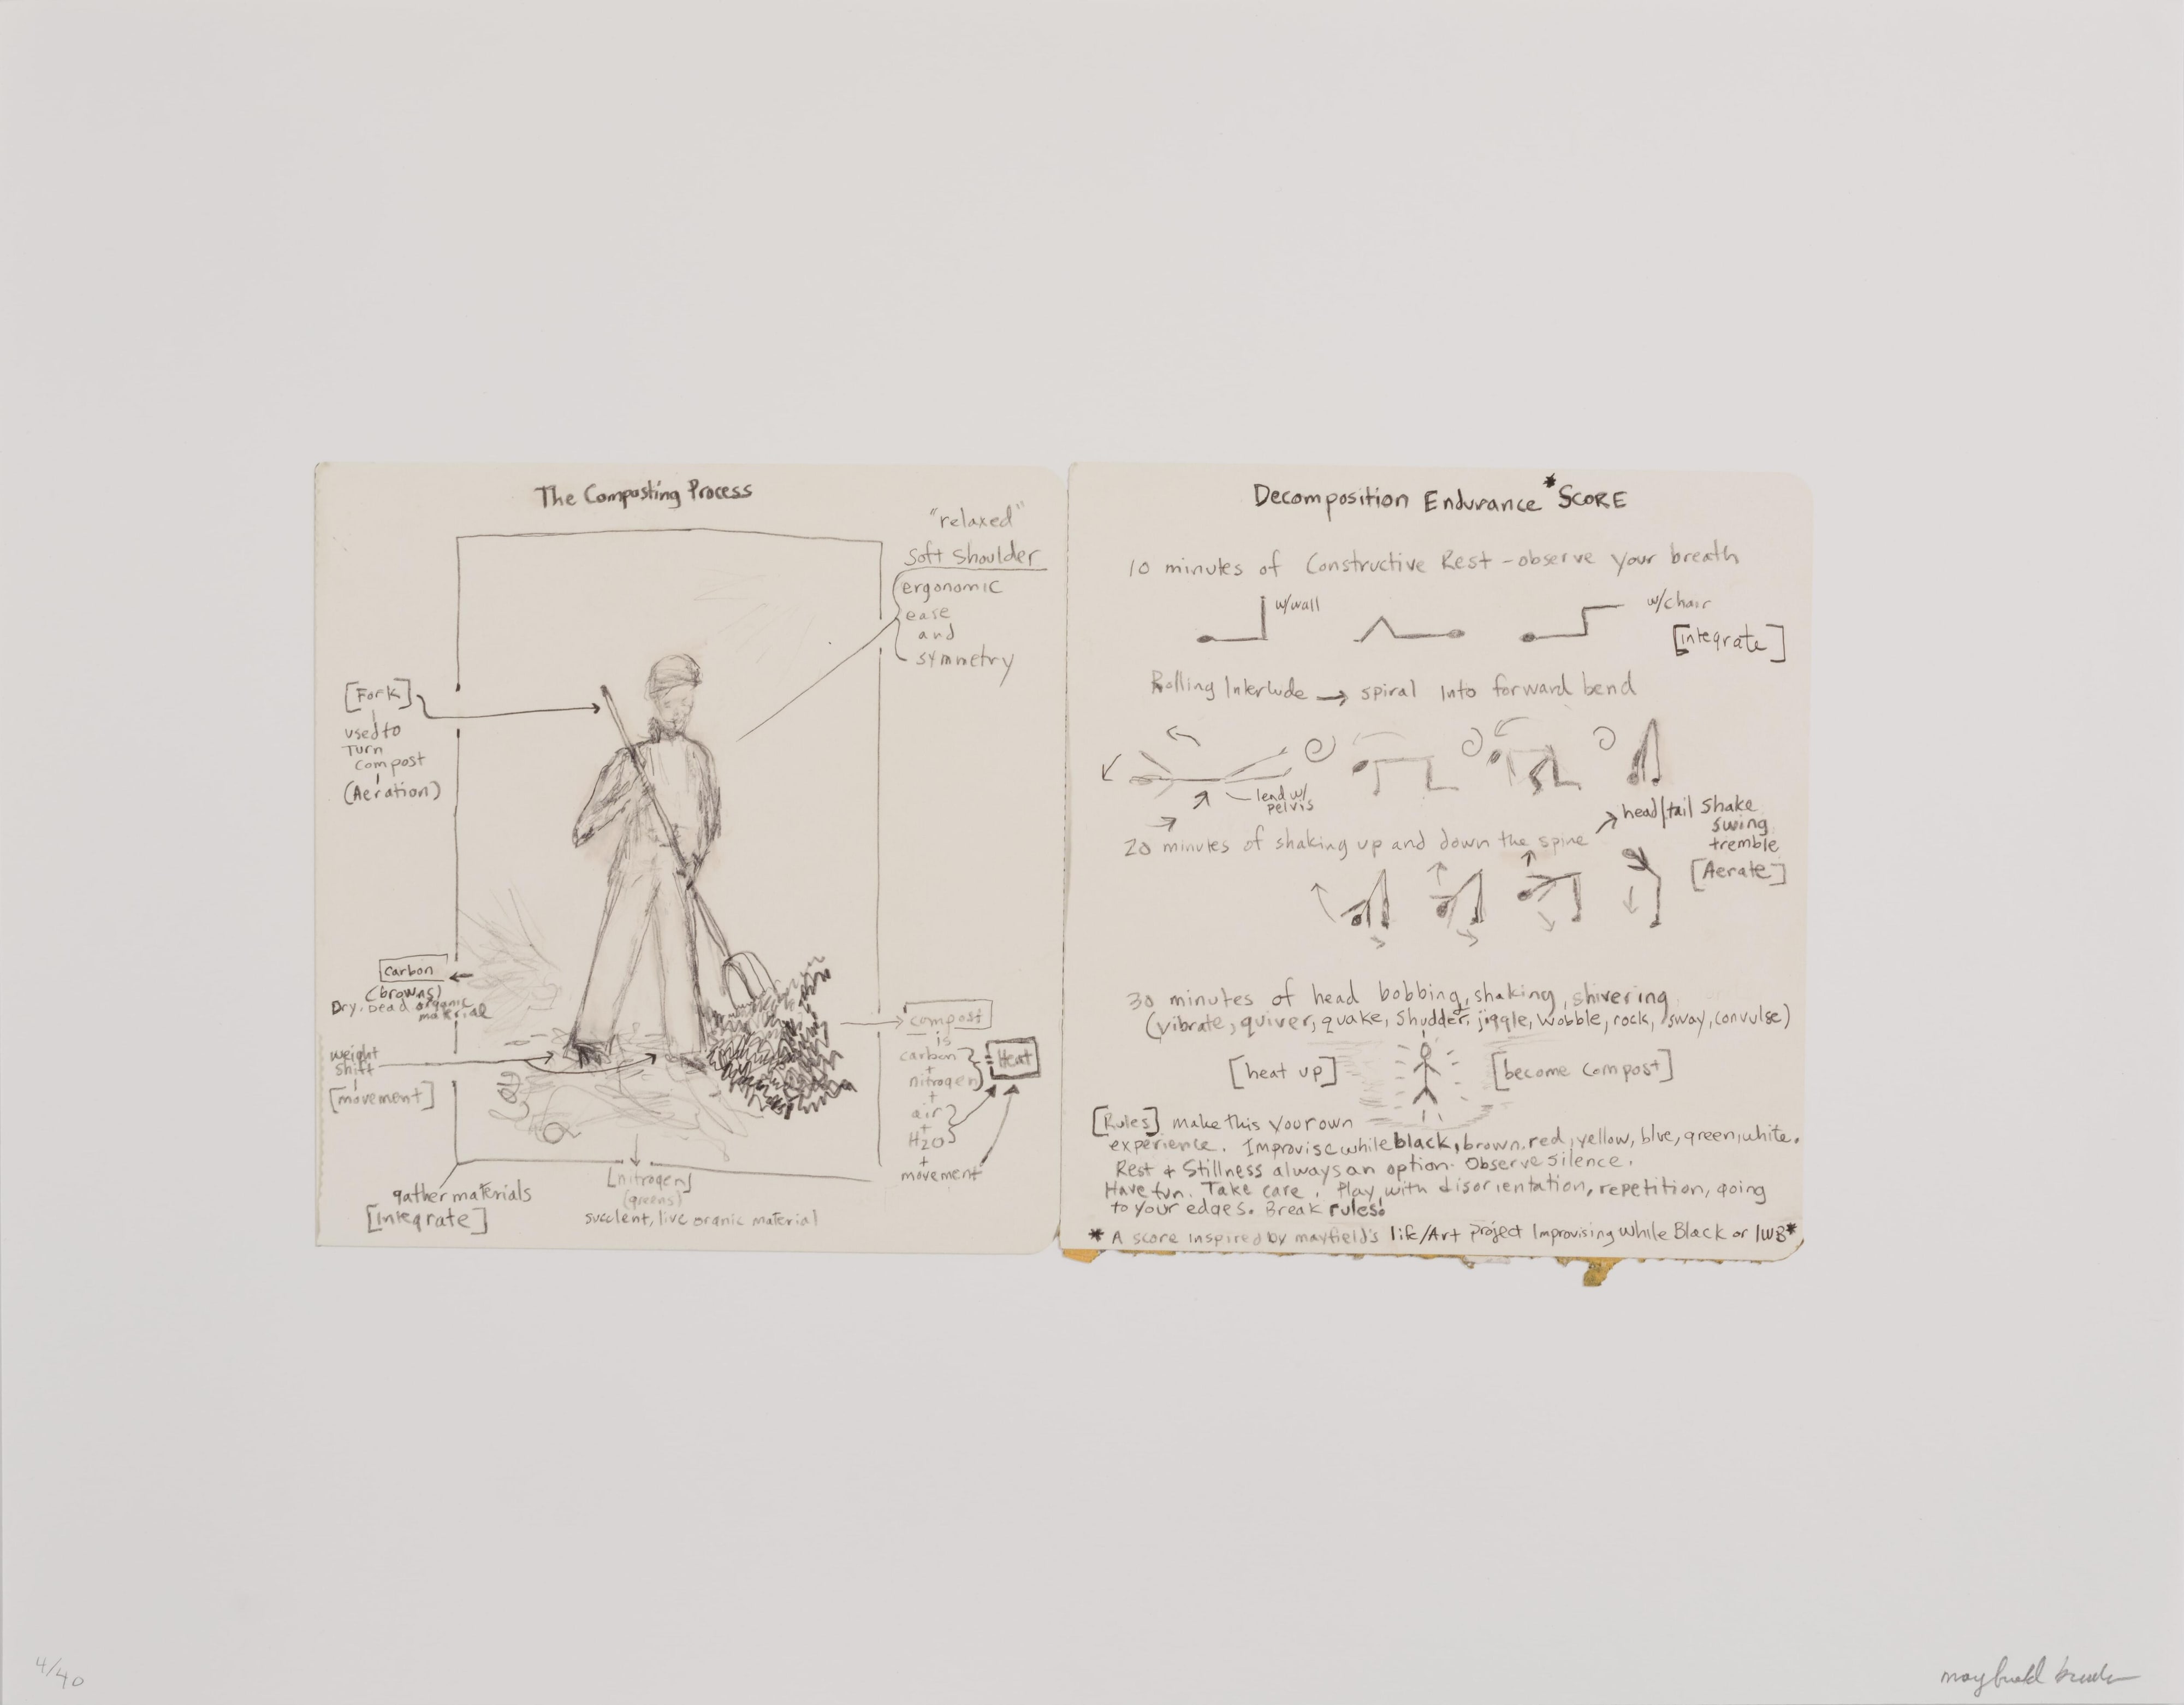 The Composting Process
"relaxed"
soft shoulder
ergonomic
ease
and
symmetry
[Fork]
used to
Turn
compost
(Aeration)
carbon
(browns)
Dry, Dead organic
material
weight
shift
[movement]
gather materials
[integrate]
[nitrogen]
(greens)
succlent, live organic material
compost
is
carbon
+
nitrogen
+
air
+
H2O
+
movement
= Heat
Decomposition Endurance * SCORE
10 minutes of Constructive Rest - observe your breath
w/wall
w/chair
[integrate]
Rolling Interlude → spiral into forward bend
lead w/
pelvis
20 minutes of shaking up and down the spine
head/tail shake
swing
tremble
[Aerate]
30 minutes of head bobbing, shaking, shivering
(vibrate, quiver, quake, shudder, jiggle, wobble, rock, sway, convulse)
[heat up]
[become compost]
[Rules] make this your own
experience. Improvise while black, brown, red, yellow, blue, green, white.
Rest + Stillness always an option. Observe silence.
Have fun. Take care. Play with disorientation, repetition, going
to your edges. Break rules!
* A score inspired by mayfield's life/Art project Improvising While Black or IWB*
4/40
mayfield brooks